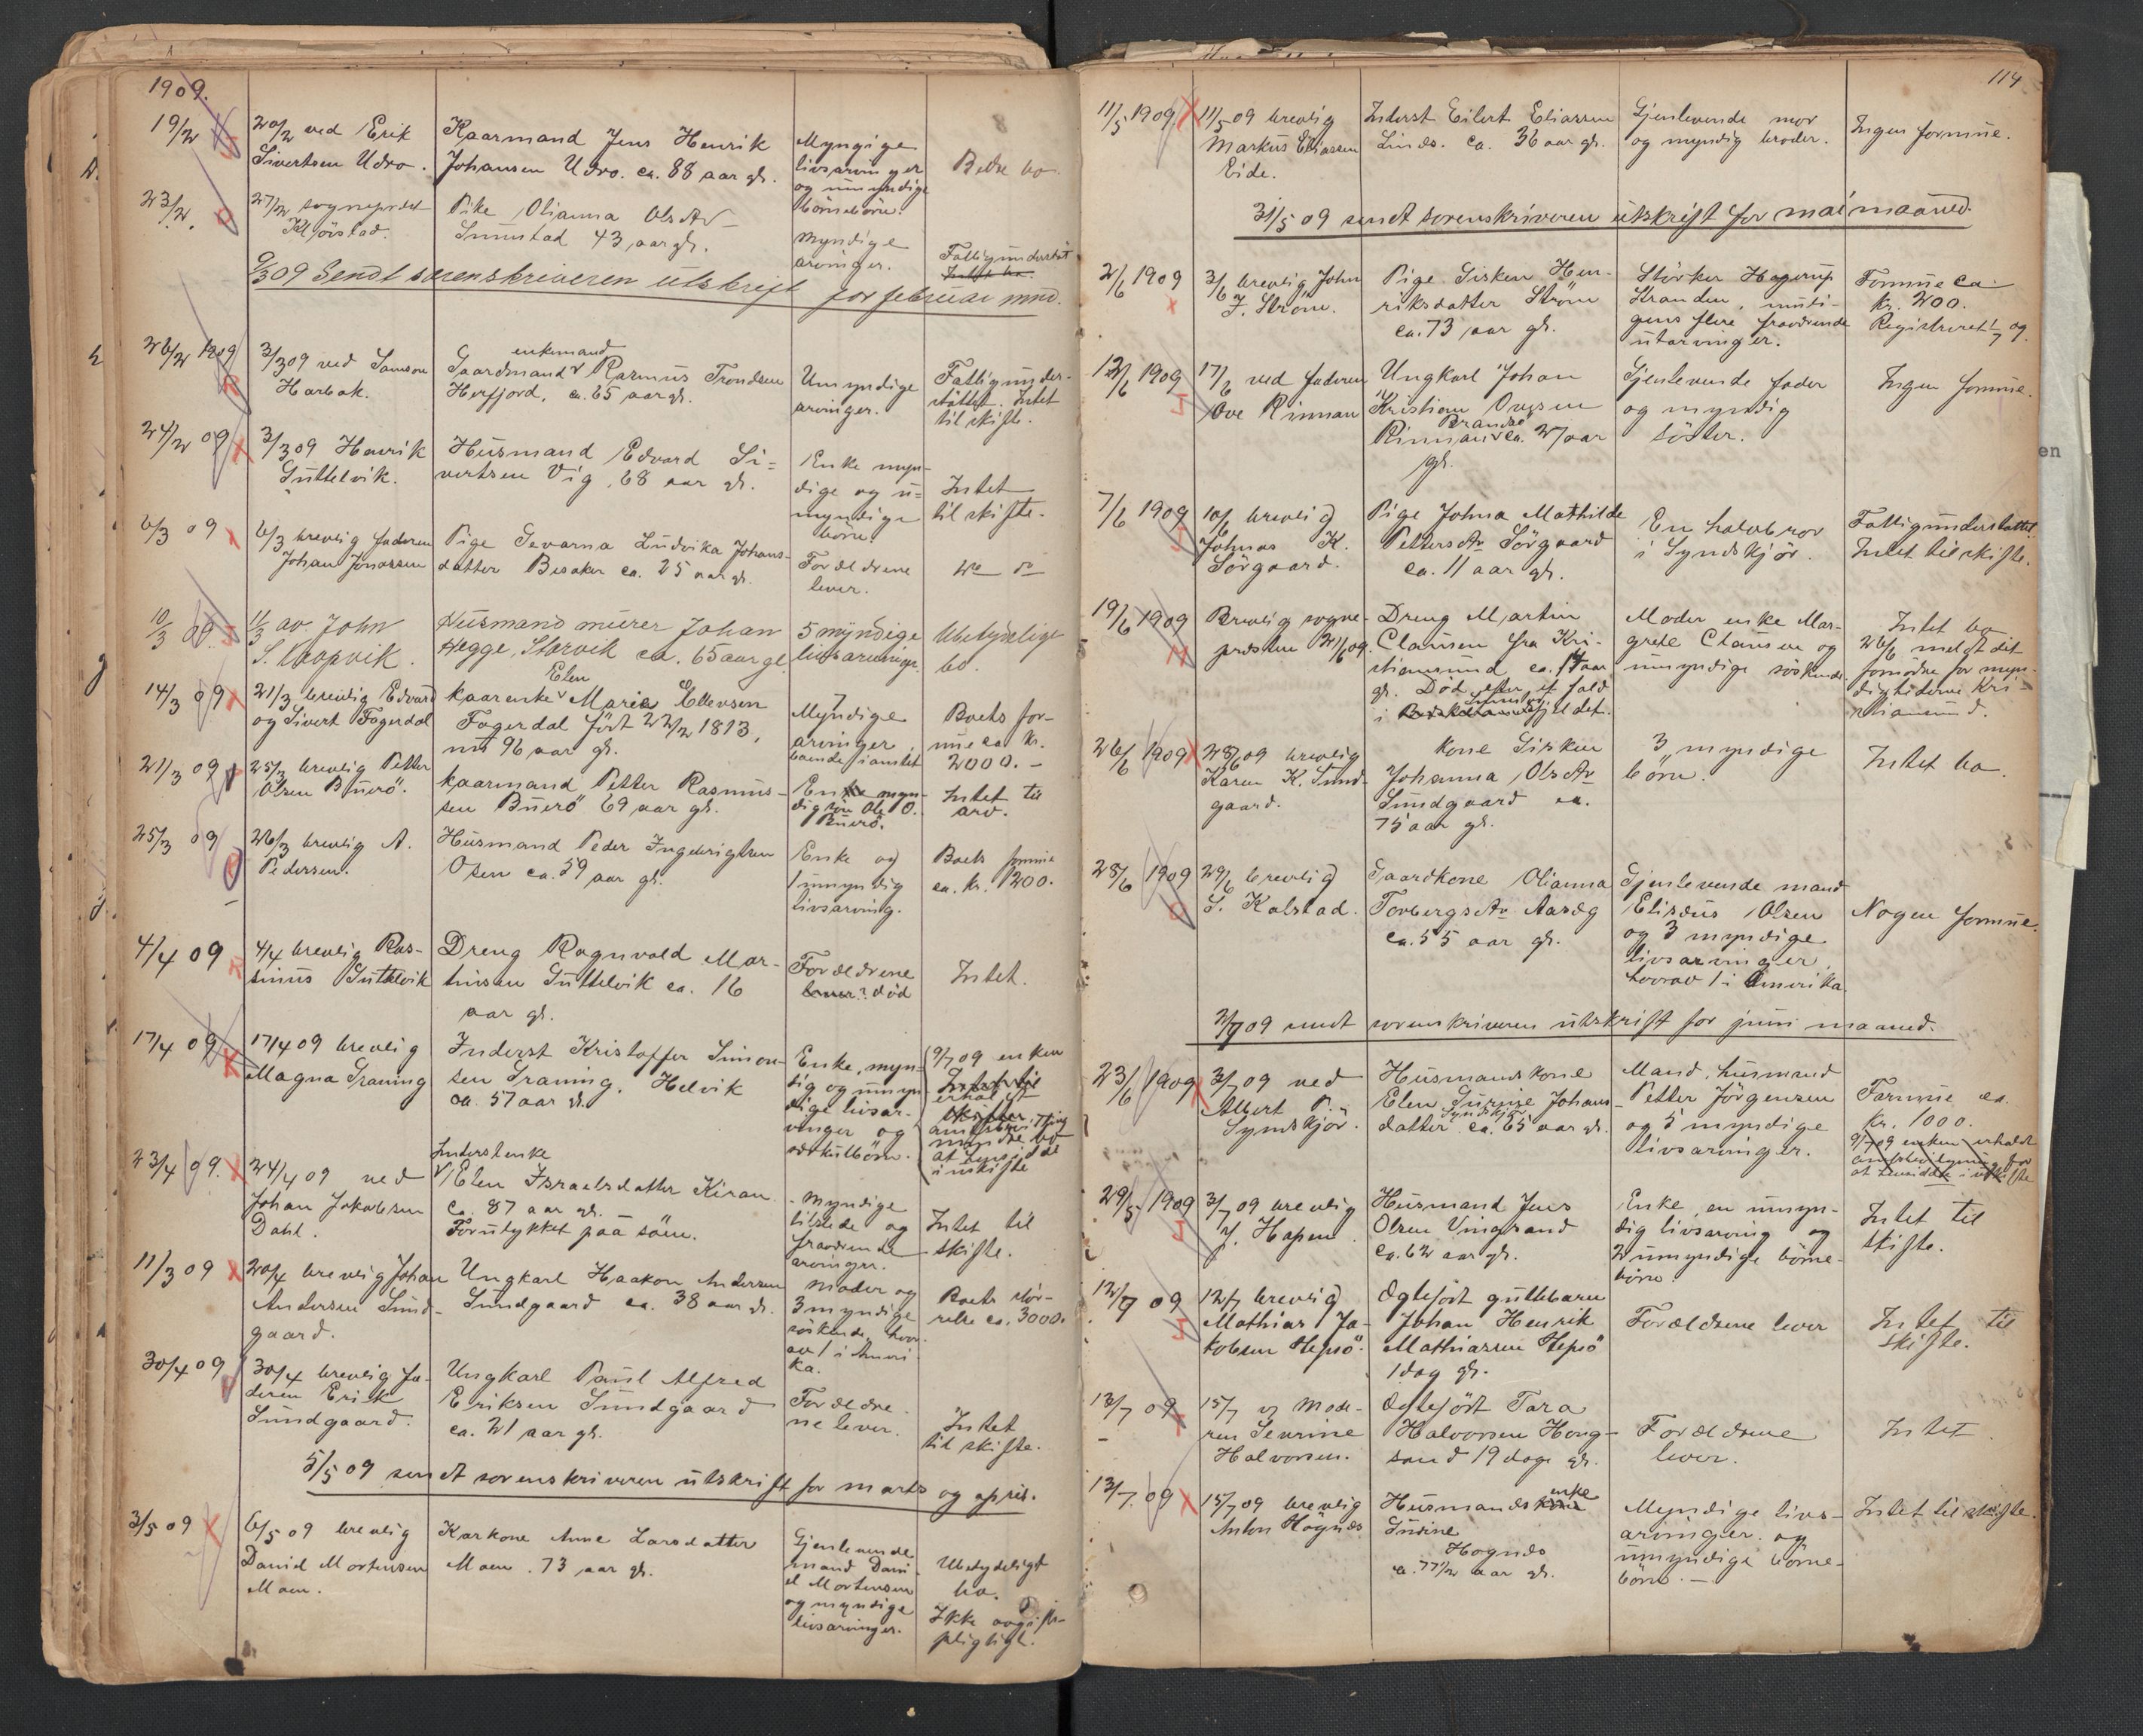 1909.
19/2
20/2 ved Erik
Sivertsen Udro.
Kaarmand Jens Henrik
Johansen Udro. ca. 88 aar gl.
Myndige
livsarvinger
og umyndige
börnebörn.
Bedre bo.
23/2.
27/2 sogneprest
Kjörstad.
Pike Olianna Olsdtr
Sumstad 43 aar gl.
Myndige
arvinger.
Fattigunderstöt
Intet bo.
9/3 09 Sendt sorenskriveren utskrift for februar mnd.
26/2 1909
3/3 09 ved Samson
Harbak.
enkemand
Gaardmand Rasmus Trondsen
Herfjord, ca. 65 aar gl.
Umyndige
arvinger.
Fattigunder-
støttet. Intet
til skifte.
24/2 09
3/3 09 Henrik
Guttelvik.
Husmand Edvard Si-
vertsen Vig, 68 aar gl.
Enke myn-
dige og u-
myndige
börn.
Intet
til skifte.
6/3 09
6/3 brevlig faderen
Johan Jonassen
Pige Gevarna Ludvika Johans-
datter Besaker ca. 25 aar gl.
Forældrene
lever.
10/3 09.
11/3 av John
S. Hopvik.
Husmand murer Johan
Hegge, Storvik ca. 65 aar gl.
5 myndige
livsarvinger
Ubetydelige
bo.
14/3 09
21/3 brevlig Edvard
og Sivert Fagerdal
Elen
kaarenke Marie Ellevsen
Fagerdal født 22/2 1813,
nu 96 aar gl.
7
Myndige
arvinger,
boende i amtet
Boets for-
mue ca kr.
2000.-
21/3 09
25/3 brevlig Petter
Olsen Buerö.
kaarmand Petter Rasmus-
sen Buerö 69 aar gl.
Enke myn-
dig sön Ole O.
Buerö.
Intet til
arv.
25/3 09
26/3 brevlig A.
Pedersen.
Husmand Peder Ingebrigtsen
Osen ca. 59 aar gl.
Enke og
1 umyndig
livsarving.
Boets formue
ca. kr. 1200.
4/4 09
4/4 brevlig Ras-
mus Guttelvik
Dreng Ragnvald Mar-
tinsen Guttelvik ca. 16
aar gl.
Forældrene
lever? död
Intet.
17/4 09
17/4 09 brevlig
Magna Graning
Inderst Kristoffer Simon-
sen Graning. Helvik
ca. 57 aar gl.
Enke, myn-
dig og umyn-
dige livsar-
vinger og
særkulbörn.
9/7 09 enken
Intet til
erholdt
skifte.
amtsbevilgning
at hensidde
i uskifte
23/4 09.
24/4 09 ved
Johan Jakobsen
Dahl.
Inderstenke
Elen Israelsdatter Kiran
ca. 87 aar gl.
Forulykket paa söen.
Myndige
tilstede og
fraværende
arvinger.
Intet til
skifte.
11/3 09
20/4 brevlig Johan
Andersen Sund-
gaard.
Ungkarl Haakon Andersen
Sundgaard ca. 38 aar gl.
Moder og
3 myndige
söskende, hvor-
av 1 i Ameri-
ka.
Boets stör-
relse ca. 3000.
30/4 09
30/4 brevlig fa-
deren Erik
Sundgaard.
Ungkarl Paul Alfred
Eriksen Sundgaard
ca. 21 aar gl.
Forældre-
ne lever.
Intet
til skifte.
5/5 09 sendt sorenskriveren utskrift for marts og april.
3/5 09
6/5 09 brevlig
David Mortensen
Moen.
Karkone Anne Larsdatter
Moen. 73 aar gl.
Gjenlevende
mand Dani-
el Mortensen
og myndige
livsarvinger.
Ubetydeligt
bo.
Ikke avgifts-
pligtigt.
114
11/5 1909
11/5 09 brevlig
Markus Eliassen
Eide.
Inderst Eilert Eliassen
Linds. ca. 36 aar gl.
Gjenlevende mor
og myndig broder.
Ingen formue.
31/5 09 sendt sorenskriveren utskrift for mai maaned.
2/6 1909
3/6 brevlig John
J. Ström.
Pige Sisken Hen-
riksdatter Ström
ca. 73 aar gl.
Störker Hagerup
Stranden, muli-
gens flere fraværende
utarvinger.
Formue ca.
kr. 200.
Registreret 1/7 09
12/6 1909
17/6 ved faderen
Ove Rinnan
Ungkarl Johan
Kristian Ovesen
Brandsö
Rinnan ca. 27 aar
gl.
Gjenlevende fader
og myndig
söster.
Ingen formue.
7/6 1909
10/6 brevlig
Johnas K.
Sörgaard.
Pige Johna Mathilde
Pettersdtr Sörgaard
ca. 11 aar gl.
En halvbror
i Syndskjör.
Fattigunderstöttet.
Intet til skifte.
19/6 1909
Brevlig sogne-
presten 21/6 09.
Dreng Martin
Clausen fra Kri-
stiansund ca. 14 aar
gl. Död efter et fald
i fjeldet.
Moder enke Mar-
grete Clausen og
umyndige söskende.
Intet bo
26/6 meldt det
fornödne for myn-
dighederne Kri-
stiansund.
26/6 1909
28/6 09 brevlig
Karen K. Sund-
gaard.
Kone Sisken
Johanna Olsdtr
Sundgaard ca.
75 aar gl.
3 myndige
börn.
Intet bo.
28/6 1909
29/6 brevlig
S. Kalstad.
Gaardkone Olianna
Torbergsdtr Aasæg
ca. 55 aar gl.
Gjenlevende mand
Elisæus Olsen
og 3 myndige
livsarvinger,
hvorav 1 i Amerika.
Nogen formue.
2/7 09 sendt sorenskriveren utskrift for juni maaned.
23/6 1909
3/7 09 ved
Albert P.
Syndskjör.
Husmandskone
Elen Gurine Johans-
Syndskjör
datter ca. 65 aar gl.
Mand, husmand
Petter Jörgensen
og 5 myndige
livsarvinger.
Formue ca.
kr. 1000.
9/7 09 enken erholdt
amtsbevilgning for
at hensidde i uskifte
29/5 1909
3/7 09 brevlig
J. Hopen.
Husmand Jens
Olsen Vingsand
ca. 62 aar gl.
Enke, en umyn-
dig livsarving og
2 umyndige börne-
börn.
Intet til
skifte.
12/7 09
12/7 brevlig
Mathias Ja-
kobsen Hepsö.
Ogtefödt guttebarn
Johan Henrik
Mathiassen Hepsö
1 dag gl.
Forældrene lever
Intet til
skifte.
13/7 09
15/7 ved mode-
ren Sevrine
Halvorsen.
Ogtefödt Tara
Halvorsen Hong-
sand 19 dage gl.
Forældrene
lever.
Intet.
13/7. 09
15/7 09 brevlig
Anton Högnds
enke
Husmandskone
Gurine
Hognds
ca. 77 1/2 aar gl.
Myndige livs-
arvinger og
umyndige börne-
börn.
Intet til skifte.